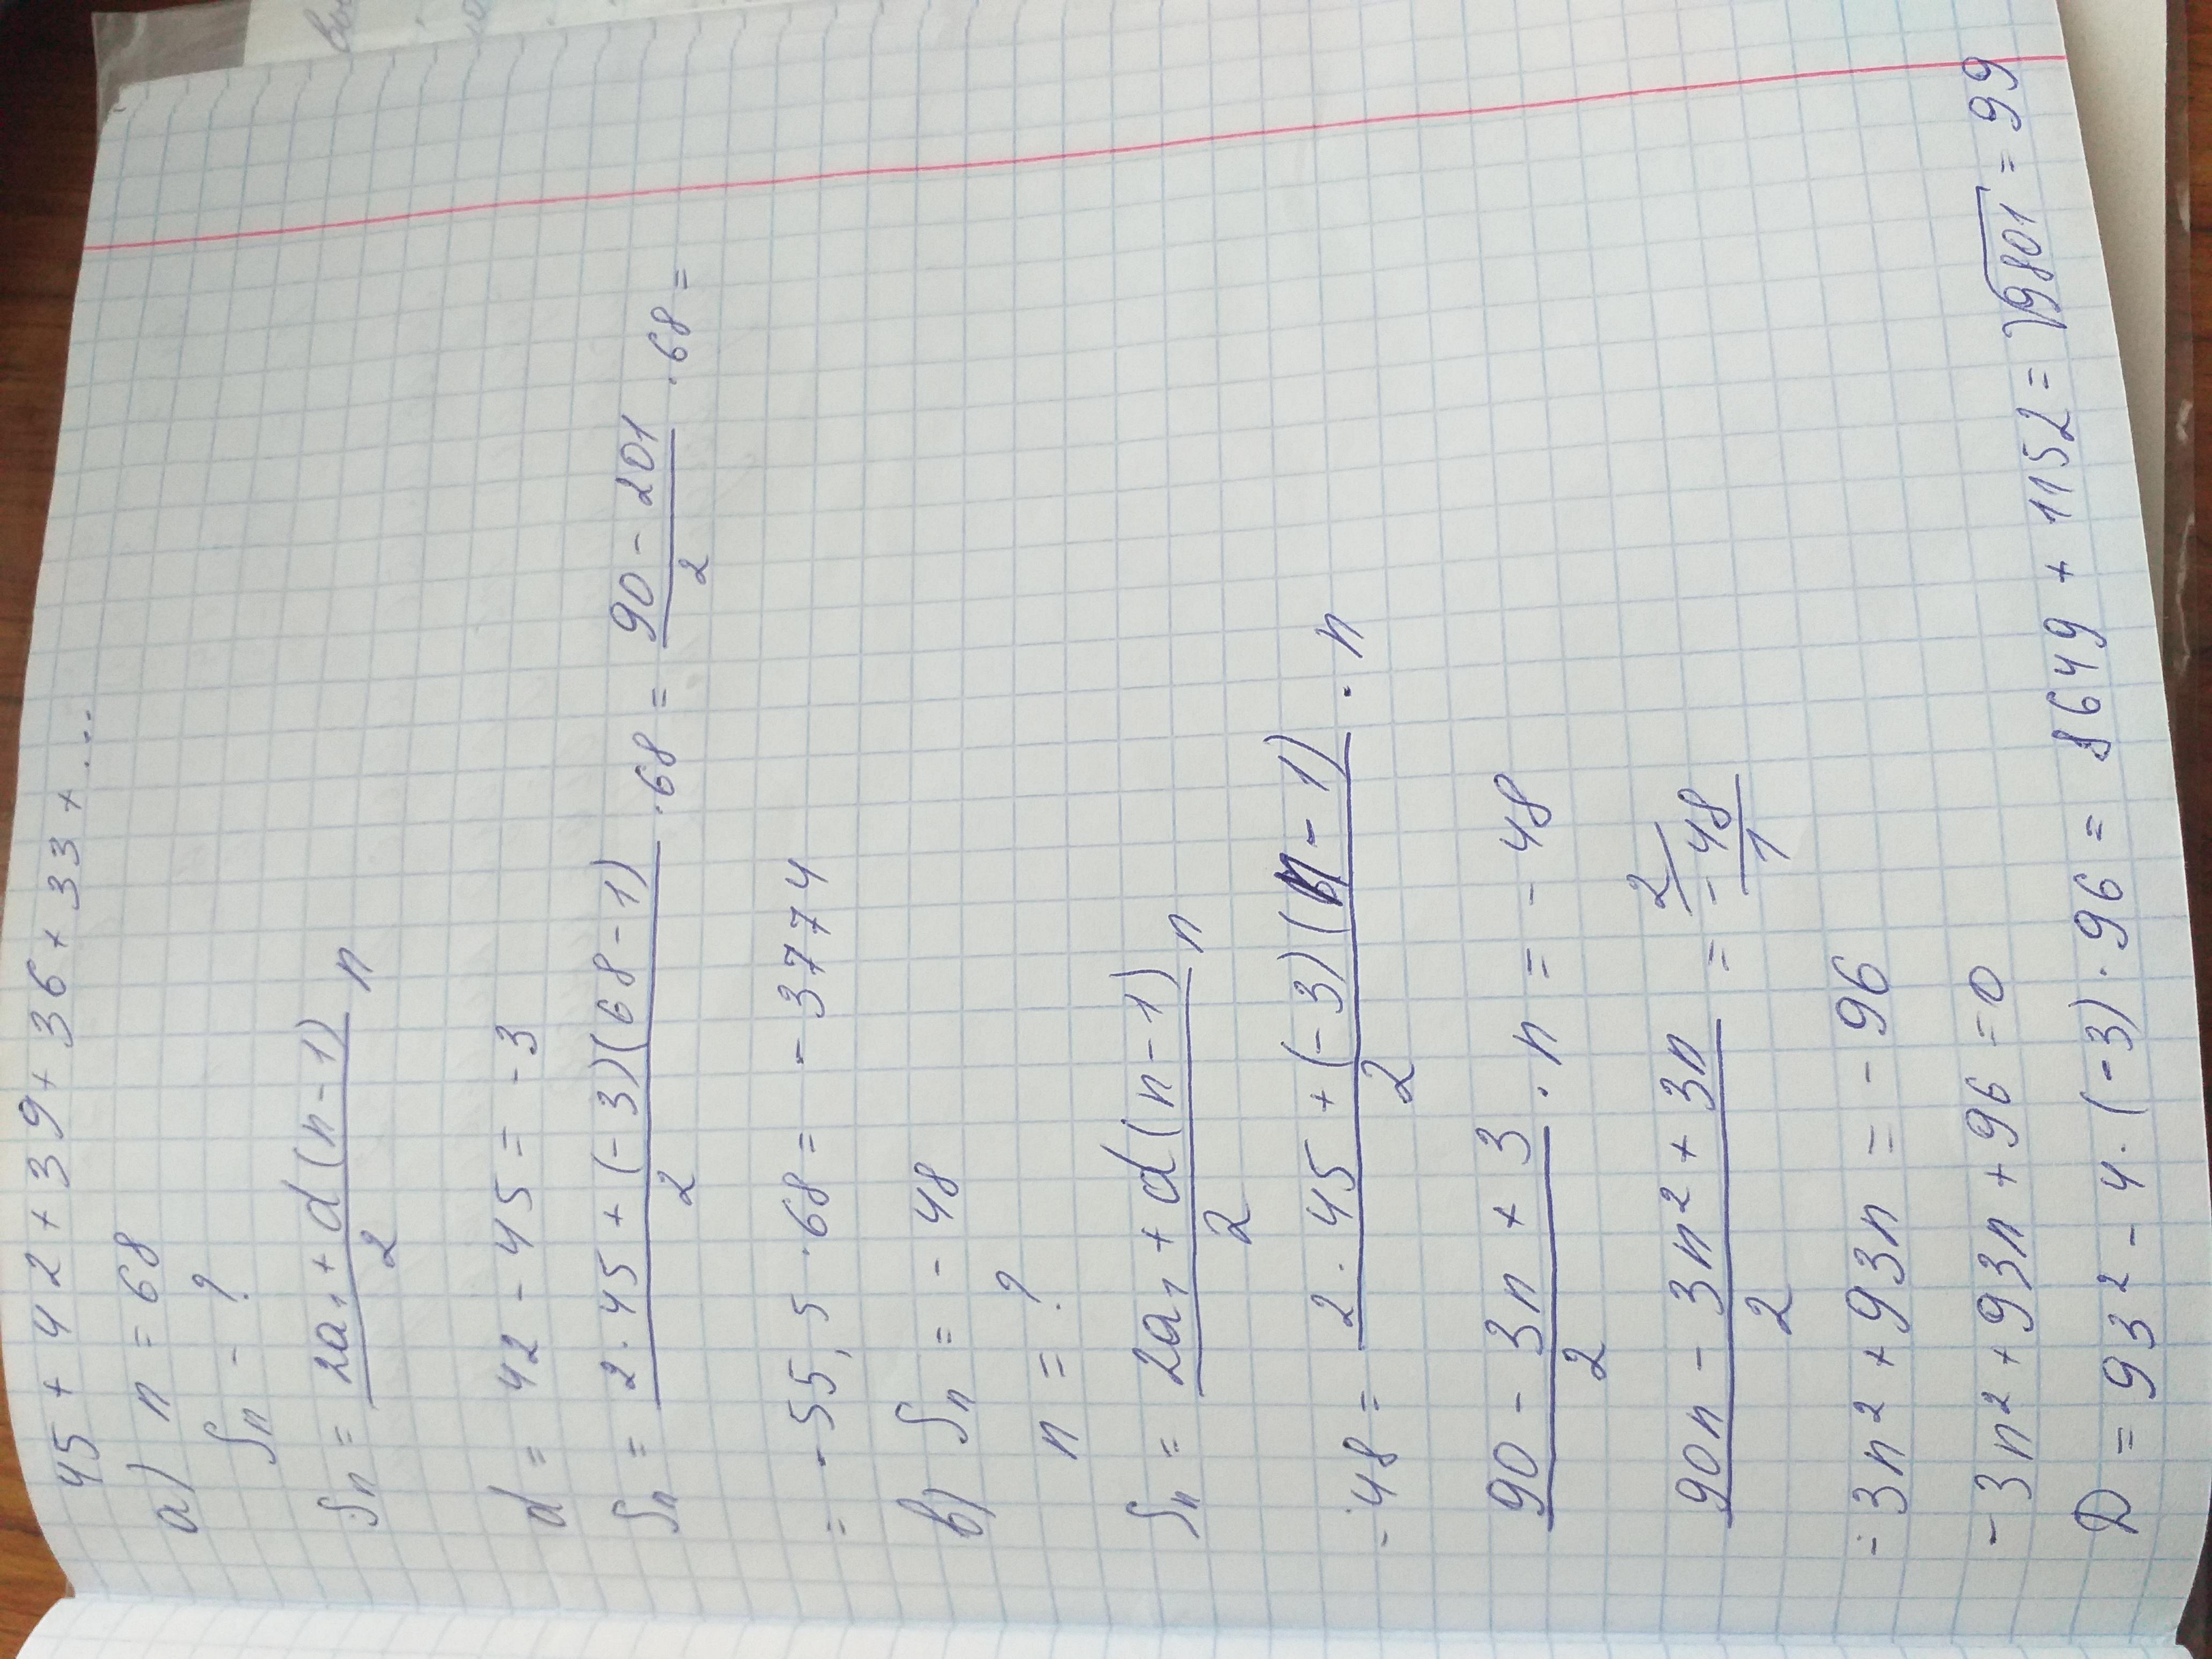 45 + 42 + 39 + 36 + 33 + ...
а) n = 68
Sn - ?
Sn = (2a₁ + d(n-1))/2 n
d = 42 - 45 = -3
Sn = (2·45 + (-3)(68-1))/2 · 68 = (90 - 201)/2 · 68 =
= -55,5 · 68 = -3774
в) Sn = -48
n = ?
Sn = (2a₁ + d(n-1))/2 n
-48 = (2·45 + (-3)(n-1))/2 · n
(90 - 3n + 3)/2 · n = -48
(90n - 3n² + 3n)/2 = 2/ -48/1
-3n² + 93n = -96
-3n² + 93n + 96 = 0
D = 93² - 4·(-3)·96 = 8649 + 1152 = √9801 = 99